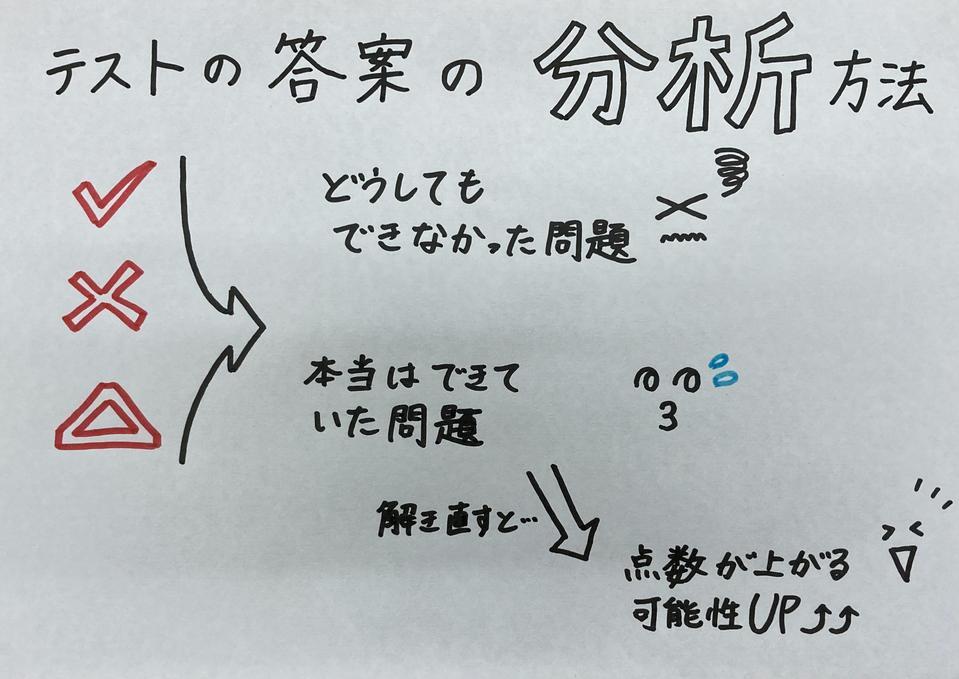 テストの答案の分析方法
どうしても
できなかった問題
本当はできて
いた問題
解き直すと…
点数が上がる
可能性UP⤴⤴